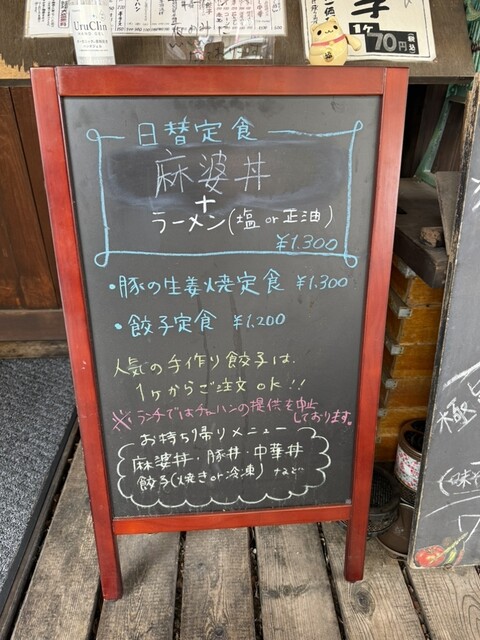 UruClin
1ヶ70円(税込)
日替定食
麻婆丼
+
ラーメン(塩 or 正油)
¥1.300
・豚の生姜焼定食 ¥1.300
・餃子定食 ¥1.200
人気の手作り餃子は、
1ヶからご注文OK!!
※ランチではチャーハンの提供を中止
しております。
お持ち帰りメニュー
麻婆丼・豚丼・中華丼
餃子(焼き or 冷凍) など